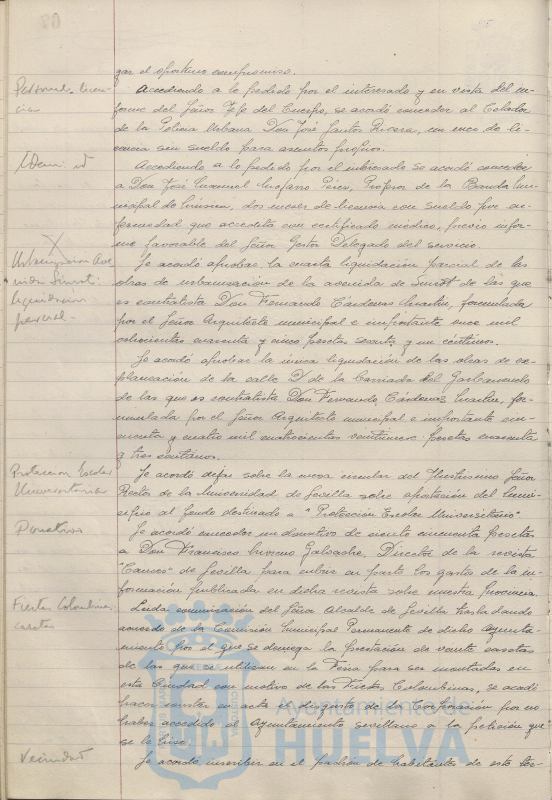 gar el oportuno compromiso.
Personal - licencia
Accediendo a lo pedido por el interesado y en vista del in-
forme del Señor Jefe del Cuerpo, se acordó conceder al Celador
de la Policia Urbana Don José Santos Rivera, un mes de li-
cencia sin sueldo para asuntos propios.
Idem id
Accediendo a lo pedido por el interesado se acordó conceder
a Don José Manuel Pérez, Profesor de la Banda Mu-
nicipal de Música, dos meses de licencia con sueldo por en-
fermedad que acredita con certificado médico, previo infor-
me favorable del Señor Gestor Delegado del servicio.
Urbanizacion Ave
nida
liquidacion
parcial -
Se acordó aprobar la cuarta liquidación parcial de las
obras de urbanización de la avenida de de las que
es contratista Don Fernando Cárdenas Martín, formulada
por el Señor Arquitecto municipal e importante once mil
ochocientas cuarenta y cinco pesetas sesenta y un céntimos.
Se acordó aprobar la única liquidación de las obras de ex-
planación de la calle D de la Barriada del
de las que es contratista Don Fernando Cárdenas Martín, for-
mulada por el Señor Arquitecto municipal e importante cin-
cuenta y cuatro mil cuatrocientas pesetas cuarenta
y tres centimos.
Proteccion Escolar
Universitaria
Se acordó dejar sobre la mesa circular del Ilustrísimo Señor
Rector de la Universidad de Sevilla sobre aportación del Muni-
cipio al fondo destinado a "Protección Escolar Universitaria".
Donativos
Se acordó conceder un donativo de ciento cincuenta pesetas
a Don Francisco Moreno Galvache, Director de la revista
"Cauces" de Sevilla para cubrir en parte los gastos de la in-
formación publicada en dicha revista sobre nuestra Provincia.
Fiestas Colombinas
casetas
Leída comunicación del Señor Alcalde de Sevilla trasladando
acuerdo de la Comisión Municipal Permanente de dicho Ayunta-
miento por el que se deniega la prestación de veinte casetas
de las que se utilizan en la Feria para ser montadas en
esta Ciudad con motivo de las Fiestas Colombinas, se acordó
hacer constar en acta el disgusto de la Corporación por no
haber accedido el Ayuntamiento sevillano a la petición que
se le hizo.
Vecindad
Se acordó inscribir en el padrón de habitantes de este tér-
Ayuntamiento de
HUELVA